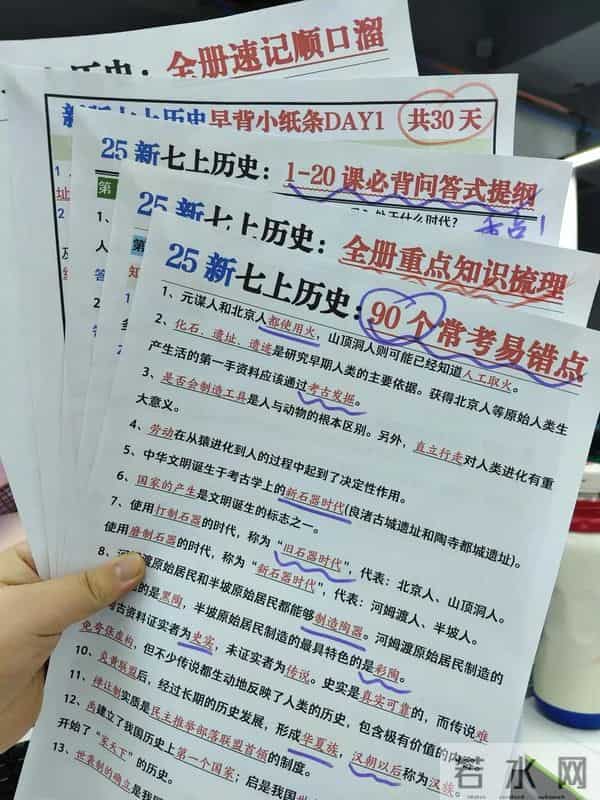 历史：全册速记顺口溜
新版七上历史早背小纸条DAY1 共30天
25新七上历史：1-20课必背问答式提纲
时代？
重点！
25新七上历史：全册重点知识梳理
25新七上历史：90个常考易错点
1、元谋人和北京人都使用火，山顶洞人则可能已经知道人工取火。
2、化石、遗址、遗迹是研究早期人类的主要依据。获得北京人等原始人类生
产生活的第一手资料应该通过考古发掘。
3、是否会制造工具是人与动物的根本区别。另外，直立行走对人类进化有重
大意义。
4、劳动在从猿进化到人的过程中起到了决定性作用。
5、中华文明诞生于考古学上的新石器时代(良渚古城遗址和陶寺都城遗址)。
6、国家的产生是文明诞生的标志之一。
7、使用打制石器的时代，称为“旧石器时代”，代表：北京人、山顶洞人。
使用磨制石器的时代，称为“新石器时代”，代表：河姆渡人、半坡人。
8、河姆渡原始居民和半坡原始居民都能够制造陶器。河姆渡原始居民制造的
的是黑陶，半坡原始居民制造的最具特色的是彩陶。
考古资料证实者为史实，未证实者为传说。史实是真实可靠的，而传说难
免夸张虚构，但不少传说都生动地反映了人类的历史，包含极有价值的内
10、炎黄联盟后，经过长期的历史发展，形成华夏族，汉朝以后称为汉族。
11、禅让制实质是民主推举部落联盟首领的制度。
12、禹建立了我国历史上第一个国家；启是我国
开始了“家天下”的历史。
13、世袭制的确立是我国
若水网